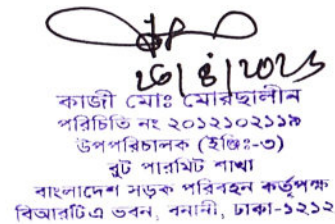 26/8/2025
কাজী মোঃ মোরছালীন
পরিচিতি নং ২০১২১০২১১৯
উপপরিচালক (ইঞ্জিঃ-৩)
রুট পারমিট শাখা
বাংলাদেশ সড়ক পরিবহন কর্তৃপক্ষ
বিআরটিএ ভবন, বনানী, ঢাকা-১২১২